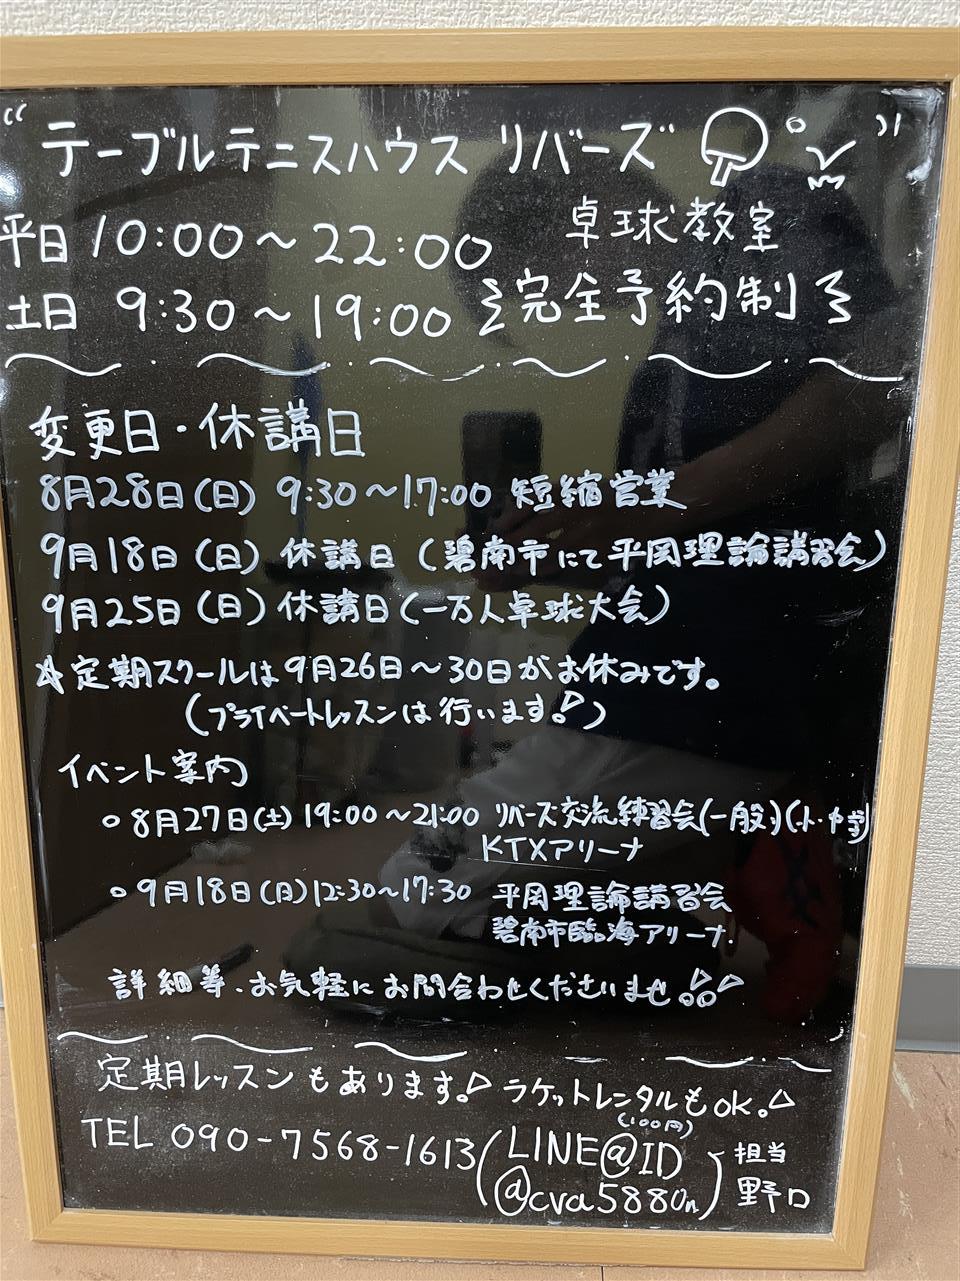 "テーブルテニスハウス リバーズ"
平日 10:00～22:00 卓球教室
土日 9:30～19:00 完全予約制
変更日・休講日
8月28日(日) 9:30～17:00 短縮営業
9月18日(日) 休講日(碧南市にて平岡理論講習会)
9月25日(日)休講日(一万人卓球大会)
☆定期スクールは9月26日～30日がお休みです。
(プライベートレッスンは行います!)
イベント案内
○8月27日(土)19:00～21:00 リバーズ交流練習会(一般)(小・中学)
KTXアリーナ
○9月18日(日)12:30～17:30 平岡理論講習会
碧南市臨海アリーナ.
詳細等、お気軽にお問合わせくださいませ!!
定期レッスンもあります! ラケットレンタルもOK。
(100円)
TEL 090-7568-1613 (LINE@ID
@cva5880n) 担当
野口